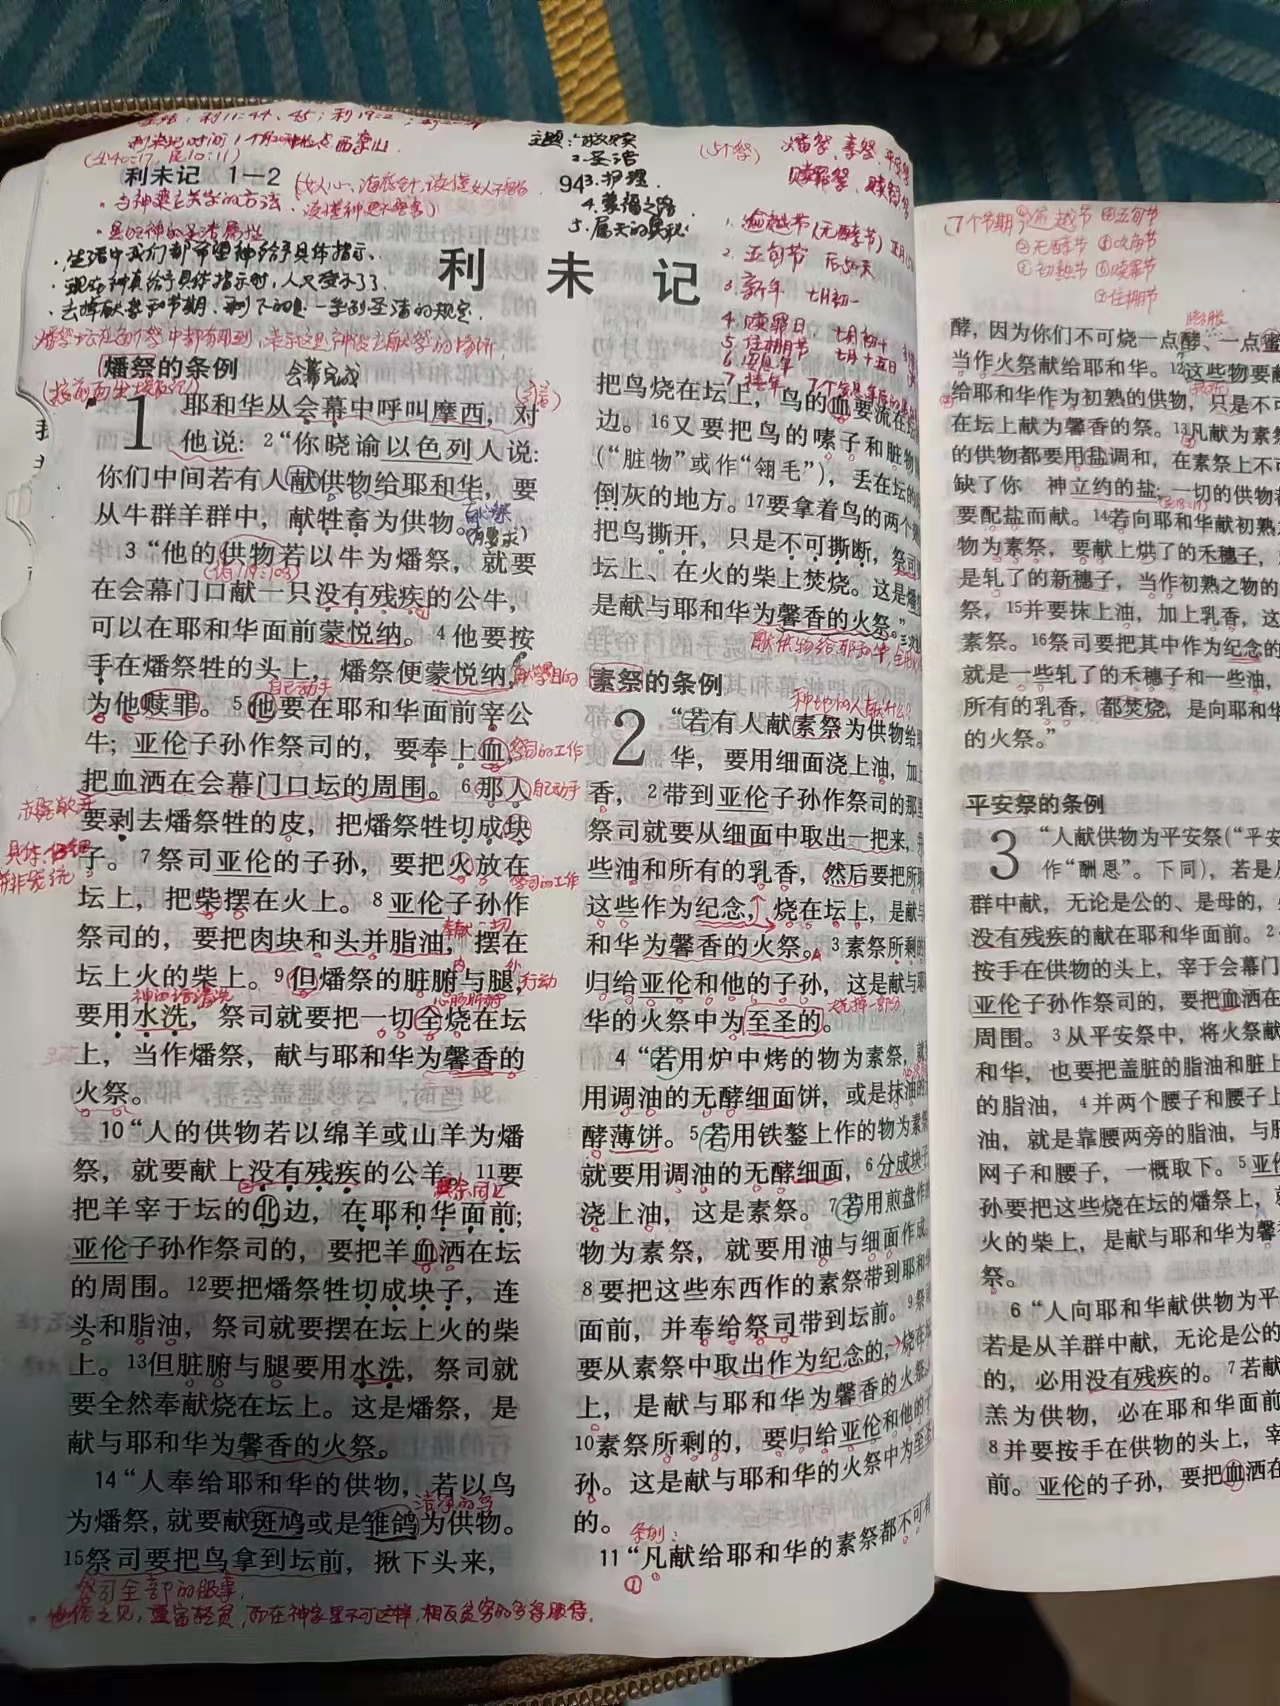 利未记 1—2
94
主题：1.救赎
2.圣洁
3.护理
4.蒙福之路
5.属天的奥秘
(5个祭) 燔祭，素祭，平安祭
赎罪祭，赎愆祭
·与神建立关系的方法
·生活中我们都希望神给予具体指示、
·现在神真给予具体指示时，人又受不了了
1.逾越节(无酵节)
2.五旬节 后50天
3.新年 七月初一
4.赎罪日 七月初十
5.住棚节 七月十五日
6.安息年
7.禧年
利 未 记
燔祭的条例 会幕完成
1 耶和华从会幕中呼叫摩西，对
他说：2“你晓谕以色列人说：
你们中间若有人献供物给耶和华，要
从牛群羊群中，献牲畜为供物。
3 “他的供物若以牛为燔祭，就要
在会幕门口献一只没有残疾的公牛，
可以在耶和华面前蒙悦纳。4 他要按
手在燔祭牲的头上，燔祭便蒙悦纳，
自己动手
为他赎罪。5 他要在耶和华面前宰公
牛；亚伦子孙作祭司的，要奉上血，祭司的工作
把血洒在会幕门口坛的周围。6 那人自己动手
要剥去燔祭牲的皮，把燔祭牲切成块
子。7 祭司亚伦的子孙，要把火放在
祭司的工作
坛上，把柴摆在火上。8 亚伦子孙作
奉献一切
祭司的，要把肉块和头并脂油，摆在
坛上火的柴上。9 但燔祭的脏腑与腿，行动
要用水洗，祭司就要把一切全烧在坛
上，当作燔祭，献与耶和华为馨香的
火祭。
10 “人的供物若以绵羊或山羊为燔
祭，就要献上没有残疾的公羊。11 要
把羊宰于坛的北边，在耶和华面前；
亚伦子孙作祭司的，要把羊血洒在坛
的周围。12 要把燔祭牲切成块子，连
头和脂油，祭司就要摆在坛上火的柴
上。13 但脏腑与腿要用水洗，祭司就
要全然奉献烧在坛上。这是燔祭，是
献与耶和华为馨香的火祭。
14 “人奉给耶和华的供物，若以鸟
洁净的鸟
为燔祭，就要献斑鸠或是雏鸽为供物。
15 祭司要把鸟拿到坛前，揪下头来，
祭司全部的服事，
把鸟烧在坛上，鸟的血要流在
边。16 又要把鸟的嗉子和脏物
(“脏物”或作“翎毛”)，丢在坛的
倒灰的地方。17 要拿着鸟的两个翅
把鸟撕开，只是不可撕断，祭司
坛上、在火的柴上焚烧。这是燔
是献与耶和华为馨香的火祭。”
素祭的条例
2 “若有人献素祭为供物给
华，要用细面浇上油，加
香，2 带到亚伦子孙作祭司的那里
祭司就要从细面中取出一把来，
些油和所有的乳香，然后要把所
这些作为纪念，烧在坛上，是献与
和华为馨香的火祭。3 素祭所剩的
归给亚伦和他的子孙，这是献与耶
华的火祭中为至圣的。
4 “若用炉中烤的物为素祭，就
用调油的无酵细面饼，或是抹油的
酵薄饼。5 若用铁鏊上作的物为素
就要用调油的无酵细面，6 分成块子
浇上油，这是素祭。7 若用煎盘作的
物为素祭，就要用油与细面作成。
8 要把这些东西作的素祭带到耶和华
面前，并奉给祭司带到坛前。9 祭司
要从素祭中取出作为纪念的，烧在坛
上，是献与耶和华为馨香的火祭。
10 素祭所剩的，要归给亚伦和他的子
孙。这是献与耶和华的火祭中为至圣
的。
条例：
11 “凡献给耶和华的素祭都不可有
7个节期 ①逾越节 ④五旬节
②无酵节 ⑤吹角节
③初熟节 ⑥赎罪节
⑦住棚节
膨胀
酵，因为你们不可烧一点酵、一点蜜
当作火祭献给耶和华。12 这些物要献
给耶和华作为初熟的供物，只是不可
在坛上献为馨香的祭。13 凡献为素祭
的供物都要用盐调和，在素祭上不可
缺了你 神立约的盐；一切的供物都
要配盐而献。14 若向耶和华献初熟
物为素祭，要献上烘了的禾穗子，
是轧了的新穗子，当作初熟之物的
祭，15 并要抹上油，加上乳香，这
素祭。16 祭司要把其中作为纪念的
就是一些轧了的禾穗子和一些油，
所有的乳香，都焚烧，是向耶和华
的火祭。”
平安祭的条例
3 “人献供物为平安祭(“平安
作“酬恩”。下同)，若是从
群中献，无论是公的、是母的，
没有残疾的献在耶和华面前。2
按手在供物的头上，宰于会幕门
亚伦子孙作祭司的，要把血洒在
周围。3 从平安祭中，将火祭献
和华，也要把盖脏的脂油和脏上
的脂油，4 并两个腰子和腰子上
油，就是靠腰两旁的脂油，与肝
网子和腰子，一概取下。5 亚伦
孙要把这些烧在坛的燔祭上，
火的柴上，是献与耶和华为馨
祭。
6 “人向耶和华献供物为平
若是从羊群中献，无论是公的
的，必用没有残疾的。7 若献
羔为供物，必在耶和华面前
8 并要按手在供物的头上，宰
前。亚伦的子孙，要把血洒在